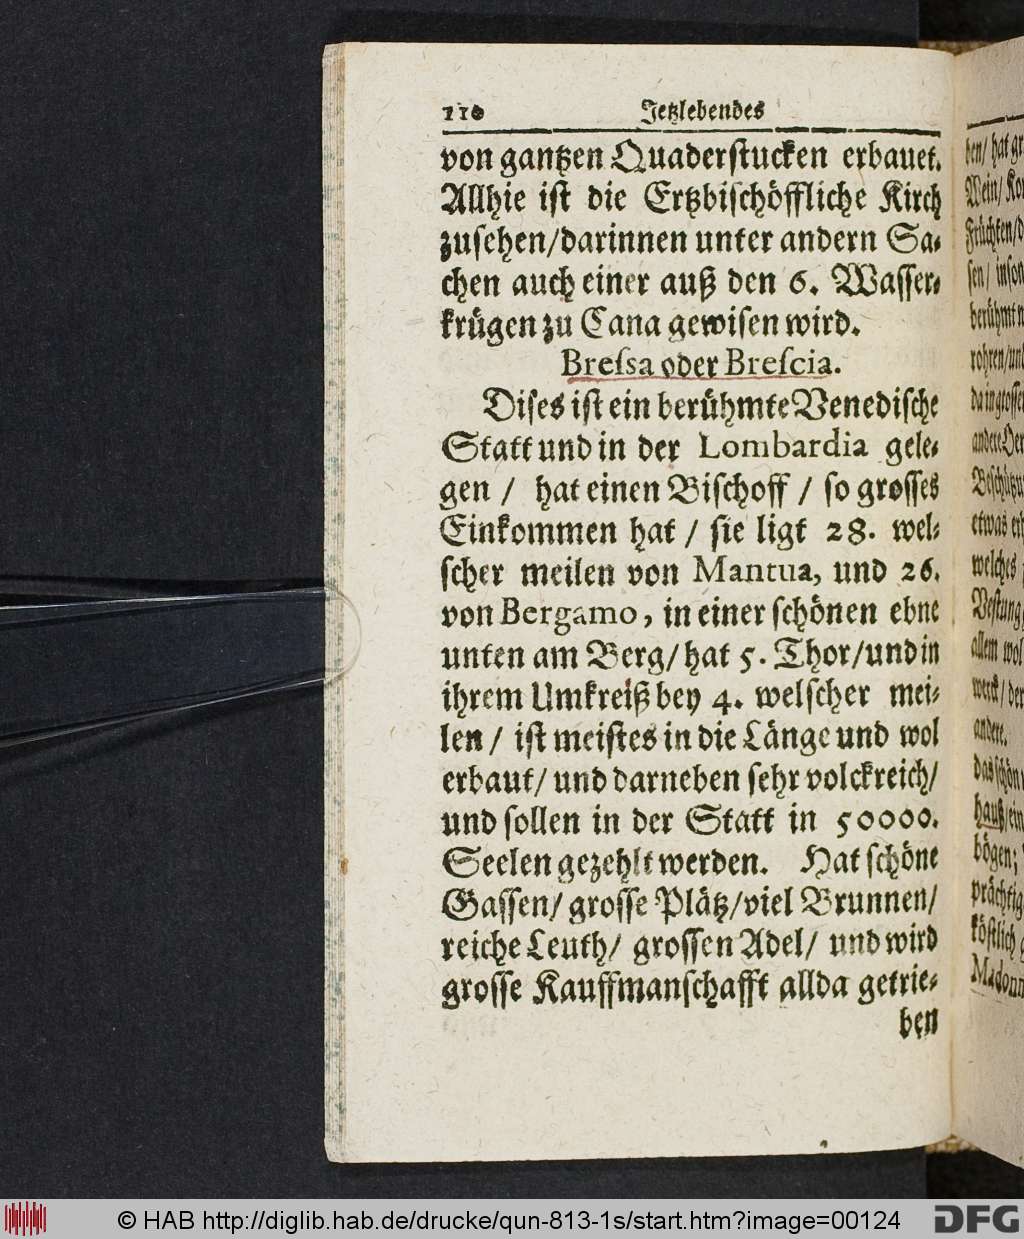 110 Jetzlebendes
von gantzen Quaderstucken erbauet.
Allhie ist die Ertzbischöffliche Kirch
zusehen/darinnen unter andern Sa-
chen auch einer auß den 6. Wasser-
krügen zu Cana gewisen wird.
Bressa oder Brescia.
Dises ist ein berühmte Venedische
Statt und in der Lombardia gele-
gen / hat einen Bischoff / so grosses
Einkommen hat / sie ligt 28. wel-
scher meilen von Mantua, und 26.
von Bergamo, in einer schönen ebne
unten am Berg/ hat 5. Thor/und in
ihrem Umkreiß bey 4. welscher mei-
len / ist meistes in die Länge und wol
erbaut/ und darneben sehr volckreich/
und sollen in der Statt in 50000.
Seelen gezehlt werden. Hat schöne
Gassen/ grosse Plätz/viel Brunnen/
reiche Leuth/ grossen Adel/ und wird
grosse Kauffmanschafft allda getrie-
ben
ben/ hat
Wein/
Früchten/
sen/
berühmt
rohren/
da in grosse
andere
etwas
welches
Vestung
allem wol
werck/ der
andere.
das schön
hauß/ein
bögen;
prächtig
köstlich
Madonn
© HAB http://diglib.hab.de/drucke/qun-813-1s/start.htm?image=00124
DFG